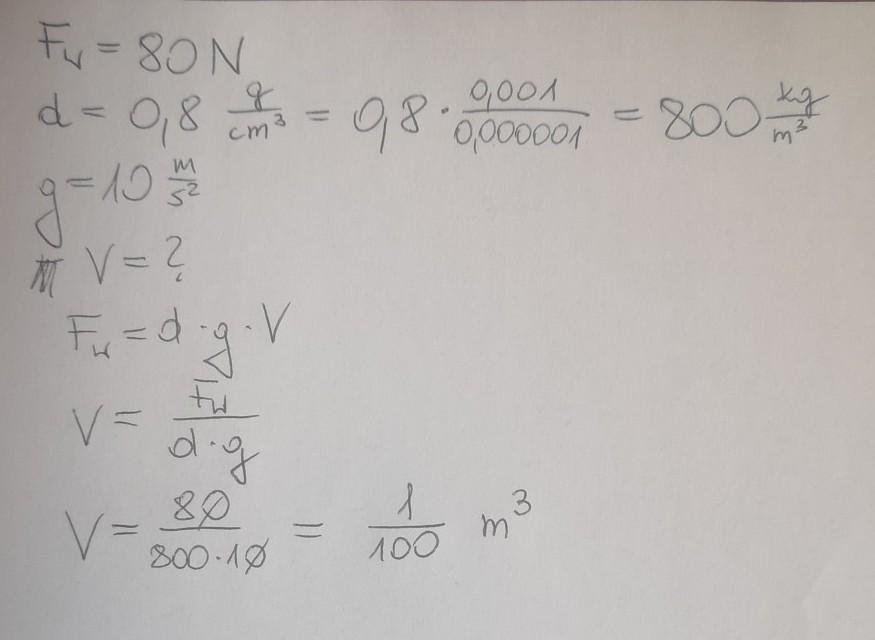 F_w = 80 N
d = 0,8 g/cm³ = 0,8 · 0,001/0,000001 = 800 kg/m³
g = 10 m/s²
V = ?
F_w = d · g · V
V = F_w/(d · g)
V = 80/(800 · 10) = 1/100 m³